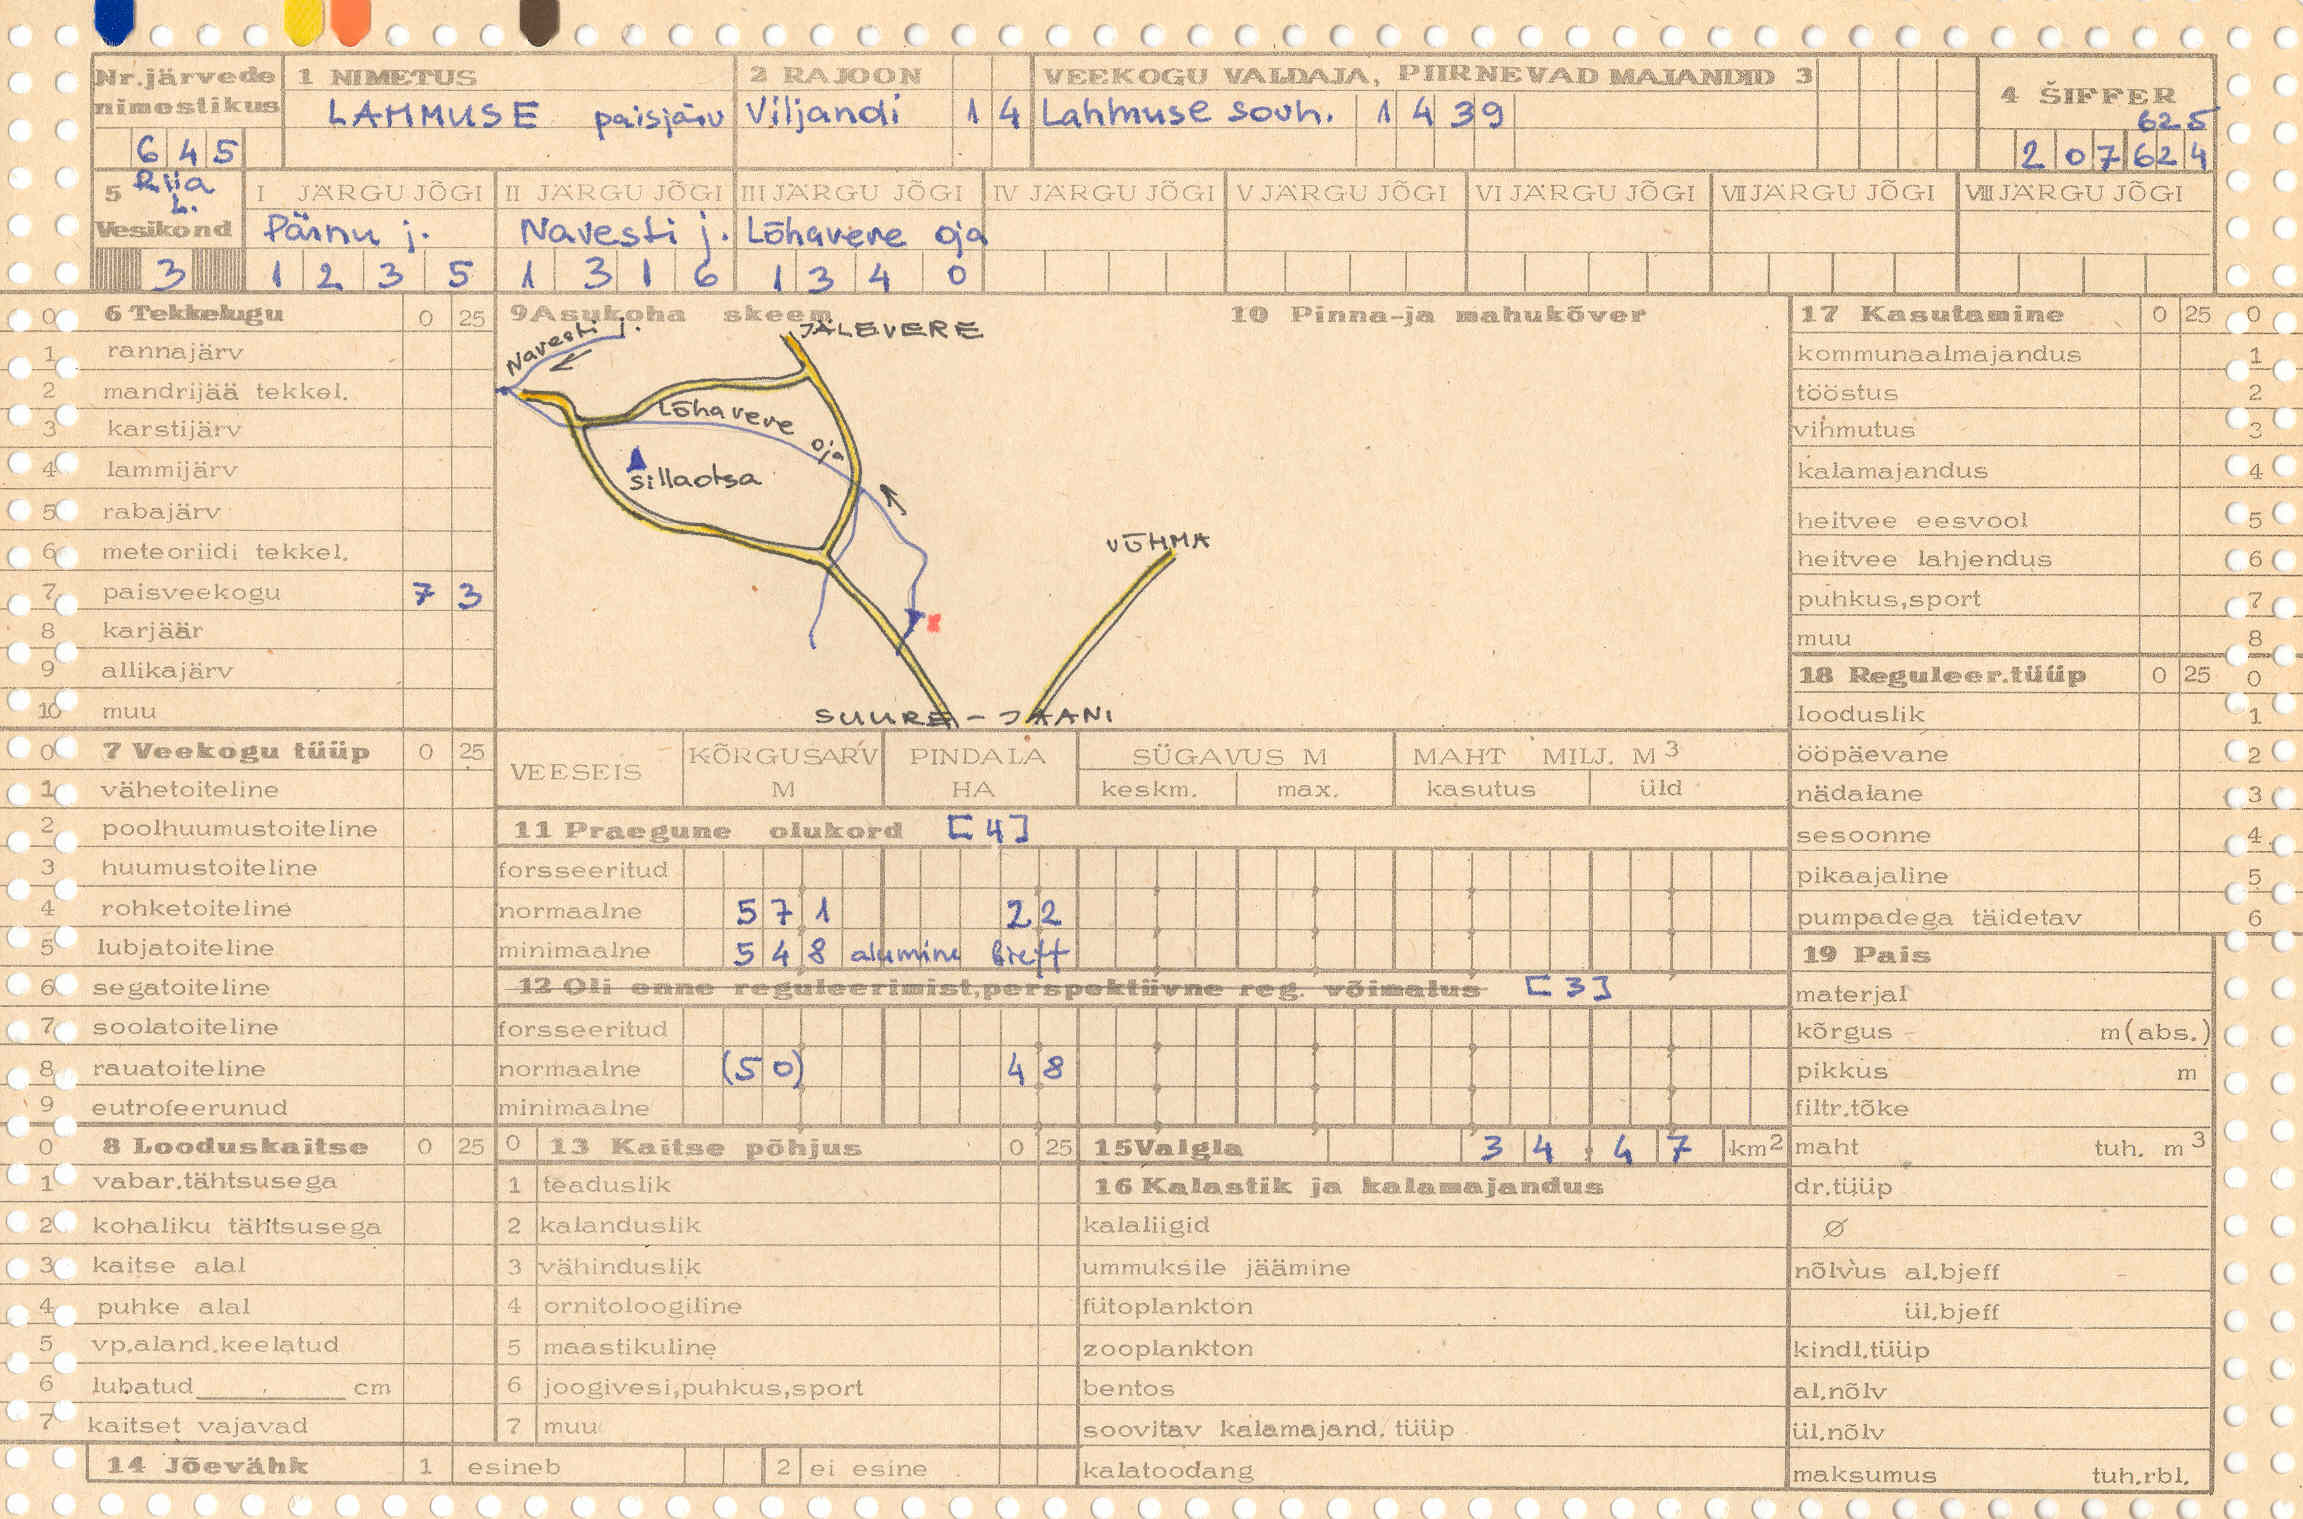 Nr.järvede nimestikus
645
1 NIMETUS
LAHMUSE paisjärv
2 RAJOON
Viljandi 14
VEEKOGU VALDAJA, PIIRNEVAD MAJANDID 3
Lahmuse sovh. 1439
4 ŠIFFER
625
207624
5 Riia L.
Vesikond
3
I JÄRGU JÕGI
Pärnu j.
1235
II JÄRGU JÕGI
Navesti j.
1316
III JÄRGU JÕGI
Lõhavere oja
1340
IV JÄRGU JÕGI
V JÄRGU JÕGI
VI JÄRGU JÕGI
VII JÄRGU JÕGI
VIII JÄRGU JÕGI
0 6 Tekkelugu 0 25
1 rannajärv
2 mandrijää tekkel.
3 karstijärv
4 lammijärv
5 rabajärv
6 meteoriidi tekkel.
7 paisveekogu 7 3
8 karjäär
9 allikajärv
10 muu
0 7 Veekogu tüüp 0 25
1 vähetoiteline
2 poolhuumustoiteline
3 huumustoiteline
4 rohketoiteline
5 lubjatoiteline
6 segatoiteline
7 soolatoiteline
8 rauatoiteline
9 eutrofeerunud
0 8 Looduskaitse 0 25
1 vabar.tähtsusega
2 kohaliku tähtsusega
3 kaitse alal
4 puhke alal
5 vp.aland.keelatud
6 lubatud cm
7 kaitset vajavad
14 Jõevähk 1 esineb 2 ei esine
9 Asukoha skeem
Navesti j.
JÄLEVERE
Lõhavere oja
Sillaotsa
VÕHMA
SUURE-JAANI
10 Pinna-ja mahukõver
VEESEIS
KÕRGUSARV M
PINDALA HA
SÜGAVUS M
keskm. max.
MAHT MILJ. M3
kasutus üld
11 Praegune olukord [4]
forsseeritud
normaalne 571 22
minimaalne 548 alumine bieff
12 Oli enne reguleerimist,perspektiivne reg. võimalus [3]
forsseeritud
normaalne (50) 48
minimaalne
0 13 Kaitse põhjus 0 25
1 teaduslik
2 kalanduslik
3 vähinduslik
4 ornitoloogiline
5 maastikuline
6 joogivesi,puhkus,sport
7 muu
15 Valgla 34.47 km2
16 Kalastik ja kalamajandus
kalaliigid
ummuksile jäämine
fütoplankton
zooplankton
bentos
soovitav kalamajand. tüüp
kalatoodang
17 Kasutamine 0 25 0
kommunaalmajandus 1
tööstus 2
vihmutus 3
kalamajandus 4
heitvee eesvool 5
heitvee lahjendus 6
puhkus,sport 7
muu 8
18 Reguleer.tüüp 0 25 0
looduslik 1
ööpäevane 2
nädalane 3
sesoonne 4
pikaajaline 5
pumpadega täidetav 6
19 Pais
materjal
kõrgus m(abs.)
pikkus m
filtr.tõke
maht tuh. m3
dr.tüüp
Ø
nõlvus al.bjeff
ül.bjeff
kindl.tüüp
al.nõlv
ül.nõlv
maksumus tuh.rbl.